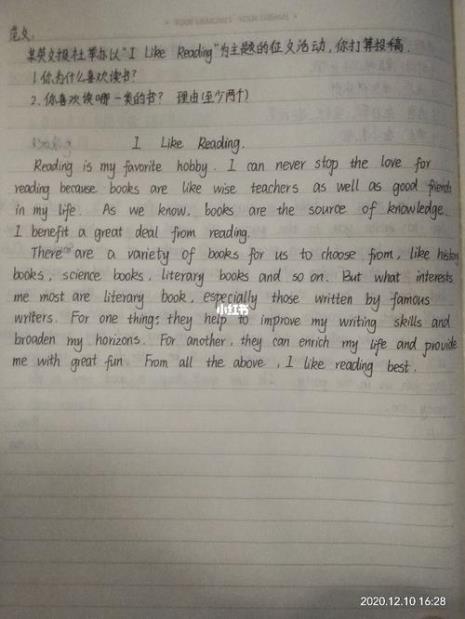 YOUR LANGUAGES YOUR LISBANS
范文.
某英文报社举办以“I Like Reading”为主题的征文活动,你打算投稿.
1.你为什么喜欢读书?
2.你喜欢读哪一类的书? 理由(至少两个)
I Like Reading.
Reading is my favorite hobby. I can never stop the love for
reading because books are like wise teachers as well as good friends
in my life. As we know, books are the source of knowledge.
I benefit a great deal from reading.
There are a variety of books for us to choose from, like history
books, science books, literary books and so on. But what interests
me most are literary book, especially those written by famous
writers. For one thing, they help to improve my writing skills and
broaden my horizons. For another, they can enrich my life and provide
me with great fun. From all the above, I like reading best.
小红书
2020.12.10 16:28